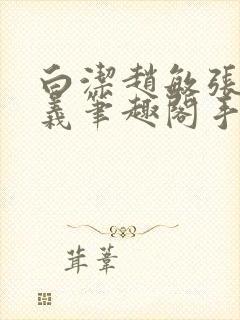 白潔趙敏張
義筆趣閣手
茸葦